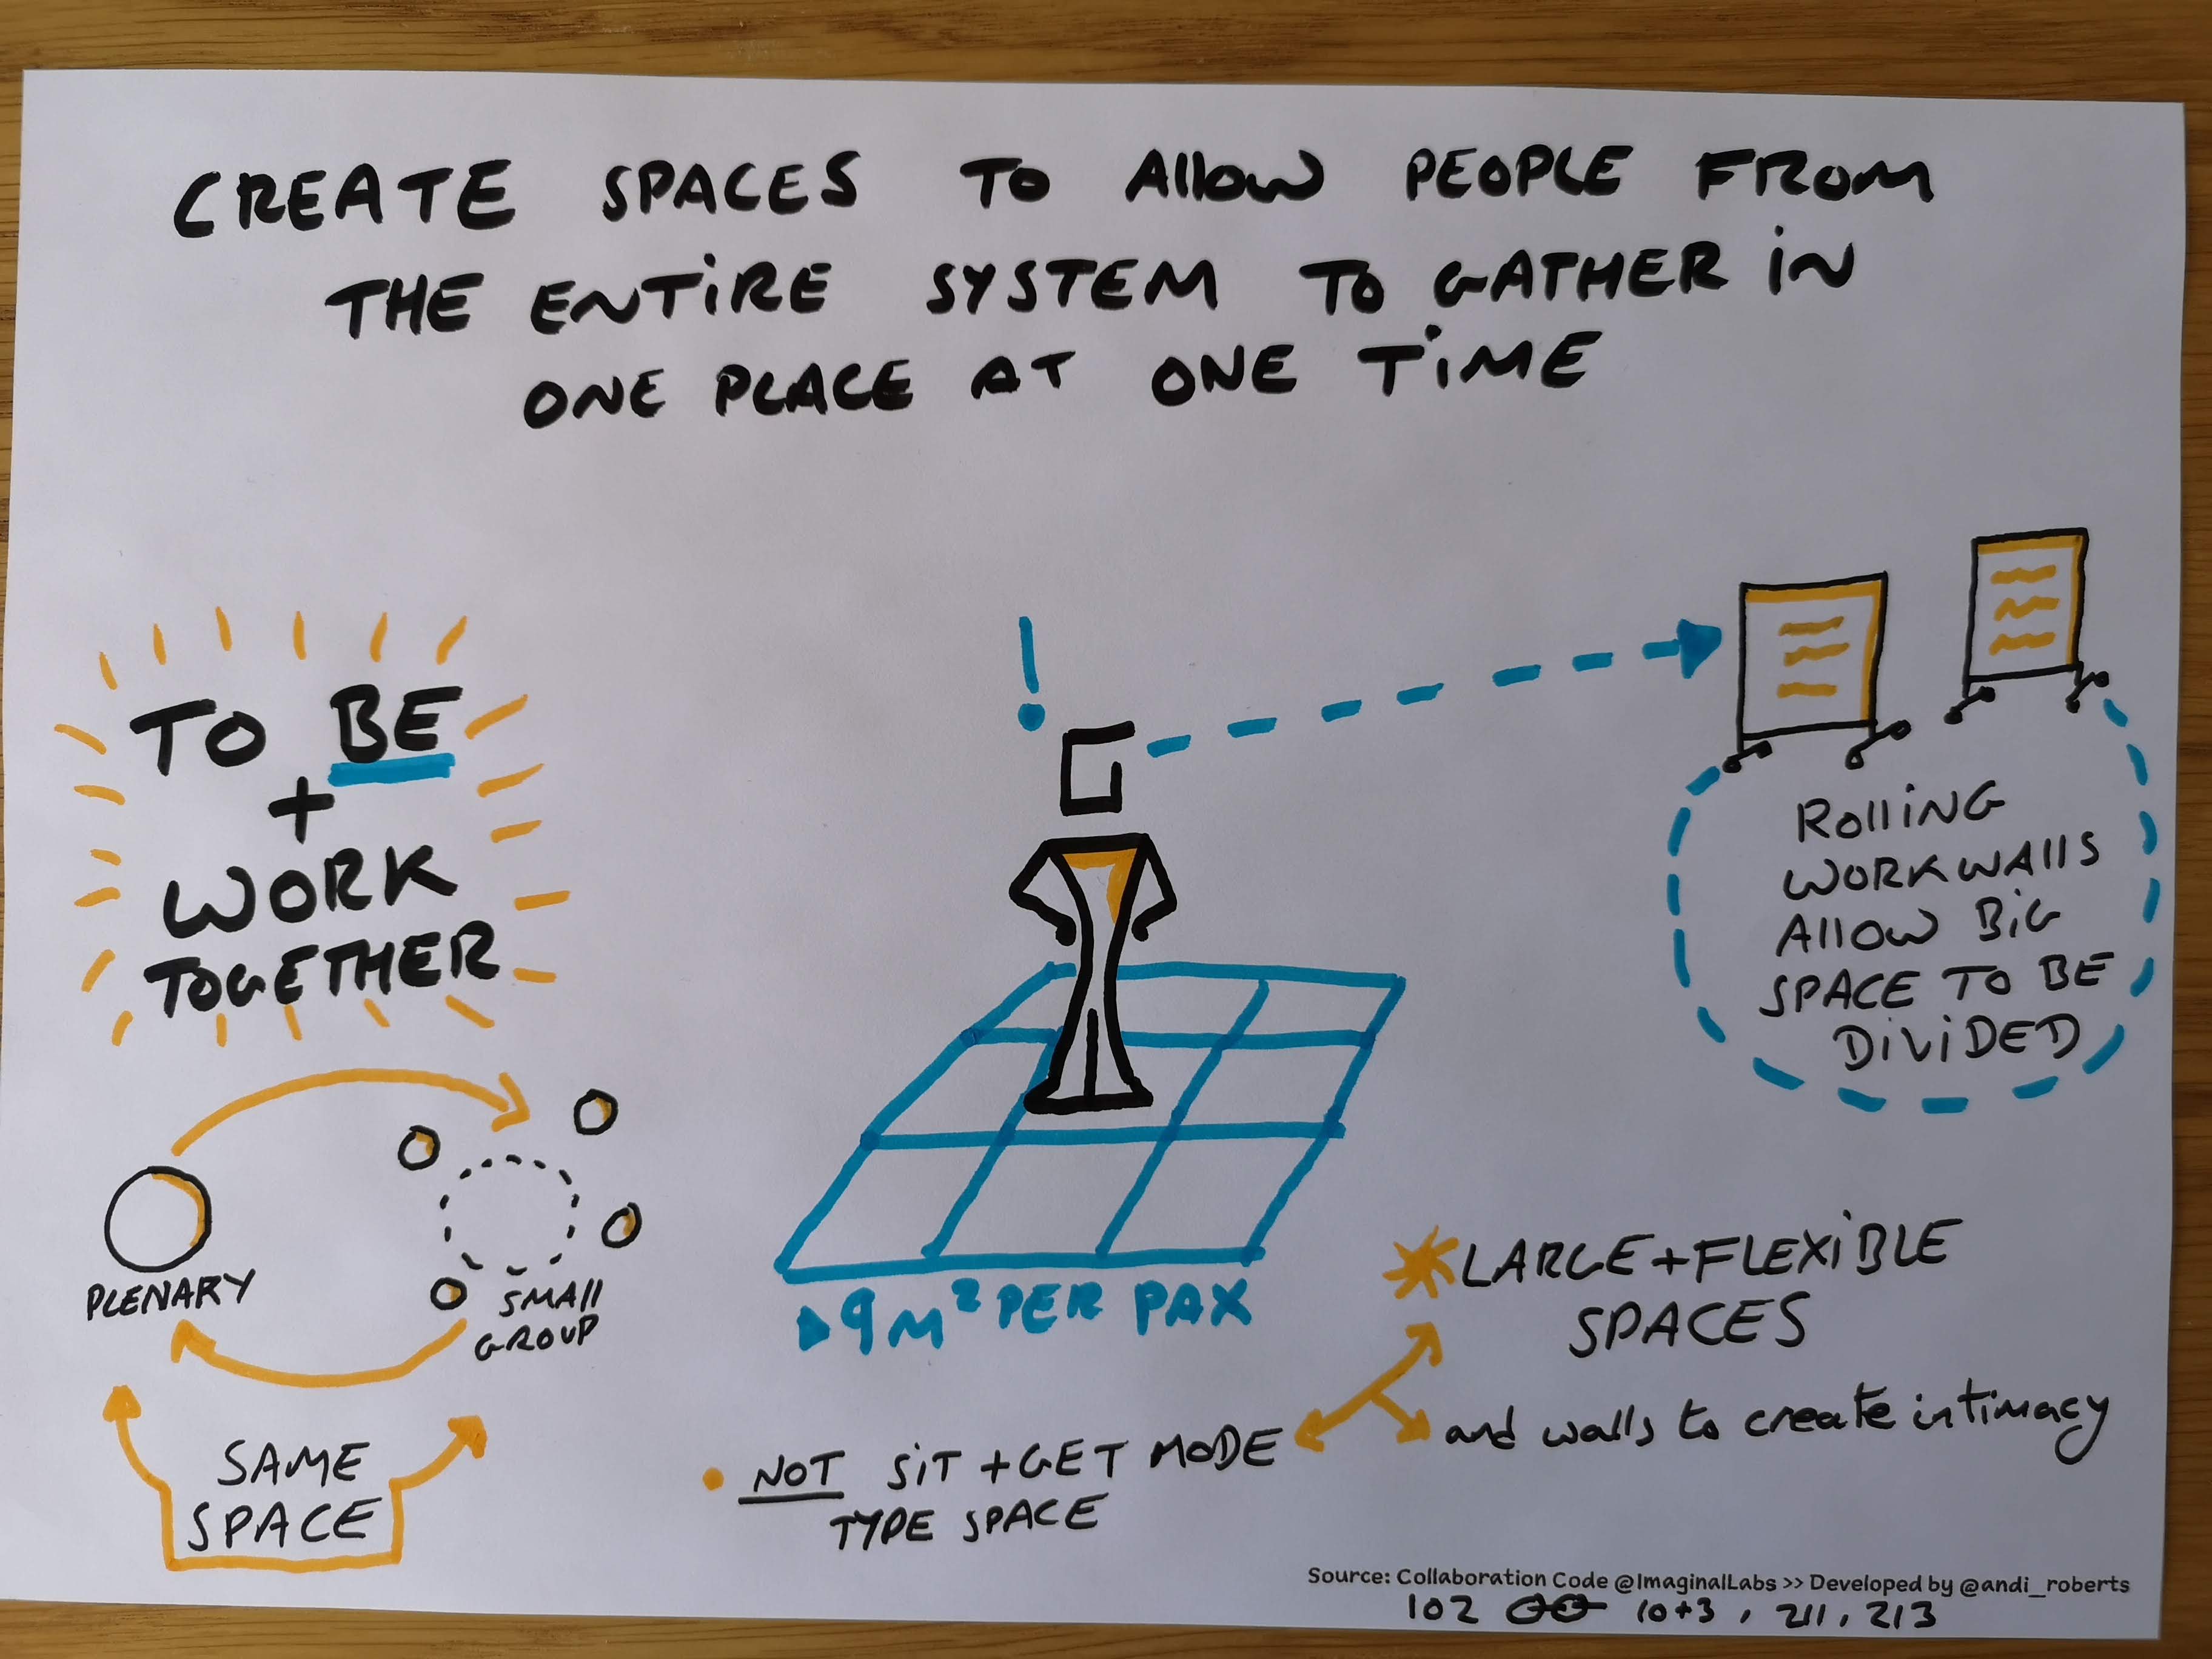 CREATE SPACES TO AllOW PEOPLE FROM
THE ENTiRE SYSTEM TO GATHER iN
ONE PLACE AT ONE TiME
!
TO BE
+
WORK
TOGETHER
ROlliNG
WORKWAllS
AllOW BiG
SPACE TO BE
DiViDED
PLENARY
SMAll
GROUP
SAME
SPACE
9M² PER PAX
LARGE + FLEXiBLE
SPACES
and walls to create intimacy
• NOT SiT + GET MODE
TYPE SPACE
Source: Collaboration Code @ImaginalLabs >> Developed by @andi_roberts
102 10+3, 211, 213